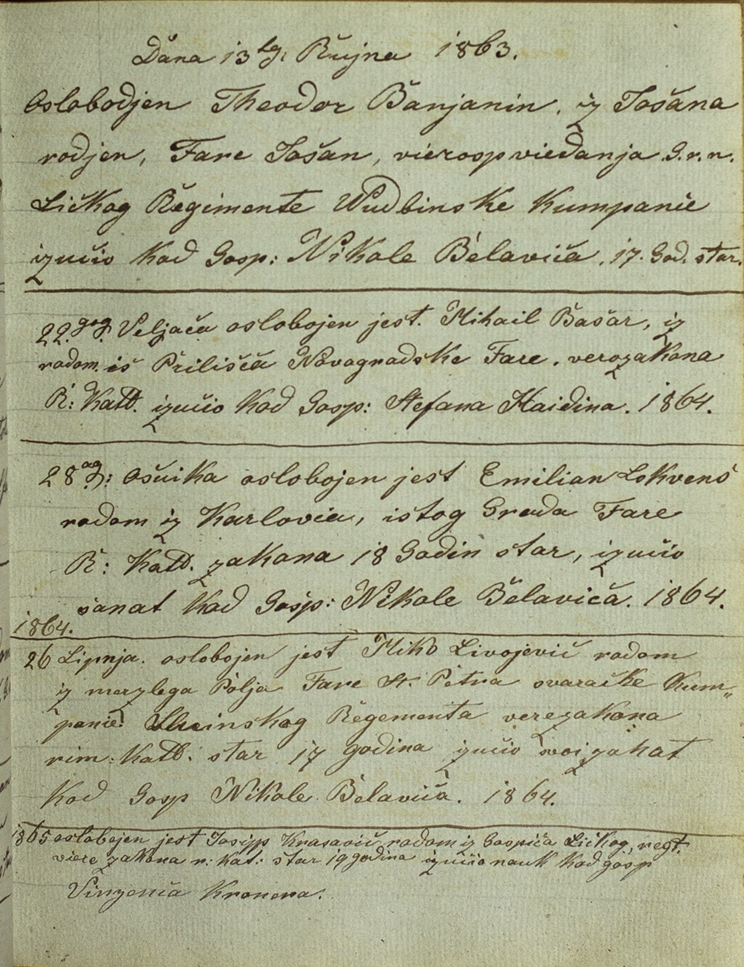 Dana 13tg. Rujna 1863.
Oslobodjen Theodor Banjanin, iz Jošana
rodjen, Fare Jošan, vierospviedanja G. r. n.
Ličkog Regimente Wudbinske Kumpanie
izučio kod Gosp: Nikole Belavića. 17. God. star.
22.gog. Veljača oslobojen jest. Mihail Bašar, iz
rodom iš Prilišća Novogradske Fare. verozakona
R: Kath. izučio kod Gosp: Stefana Haidina. 1864.
28 og: Ošuika oslobojen jest Emilian Lokvenš
rodom iz Karlovca, istog Grada Fare
R: Kath. zakona 18 Godin star, izučio
sanat kod Gosp: Nikole Belavića. 1864.
1864.
26 Lipnja. oslobojen jest Miko Livojević rodom
iz Polja Fare St. Petra svaračke Kum„
panie. Regementa verezakona
rim: Kath. star 17 godina izučio svoi zahat
kod Gosp Nikole Belavića. 1864.
1865 oslobojen jest Josip Krasavić, rodom iz Gospića Ličkog, regt.
viere zakona r. kat: star 19 godina izučio nauk kod gosp
Vinzenca Kronera.